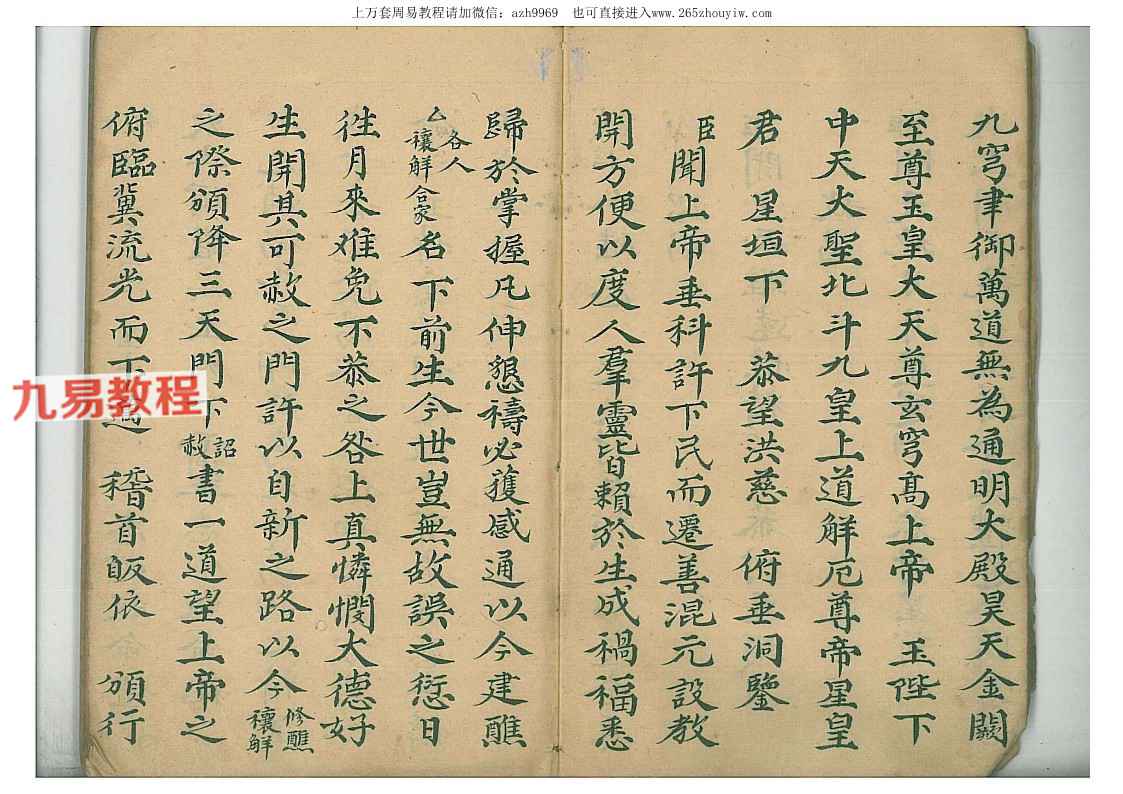 上万套周易教程请加微信：azh9969　也可直接进入www.265zhouyiw.com
九穹聿御萬道無為通明大殿昊天金闕
至尊玉皇大天尊玄穹髙上帝　玉陛下
中天大聖北斗九皇上道解厄尊帝星皇
君　星垣下　恭望洪慈　俯垂洞鑒
臣聞上帝垂科許下民而遷善混元設教
開方便以度人羣靈皆賴於生成禍福悉
歸於掌握凡伸懇禱必獲感通以今建醮
各人
禳觧合家名下前生今世豈無故誤之愆日
徃月來难免不恭之咎上真憐憫大德好
生開其可赦之門許以自新之路以今修醮禳觧
之際頒降三天門下詔赦書一道望上帝之
俯臨冀流光而下　稽首皈依　頒行
九易教程